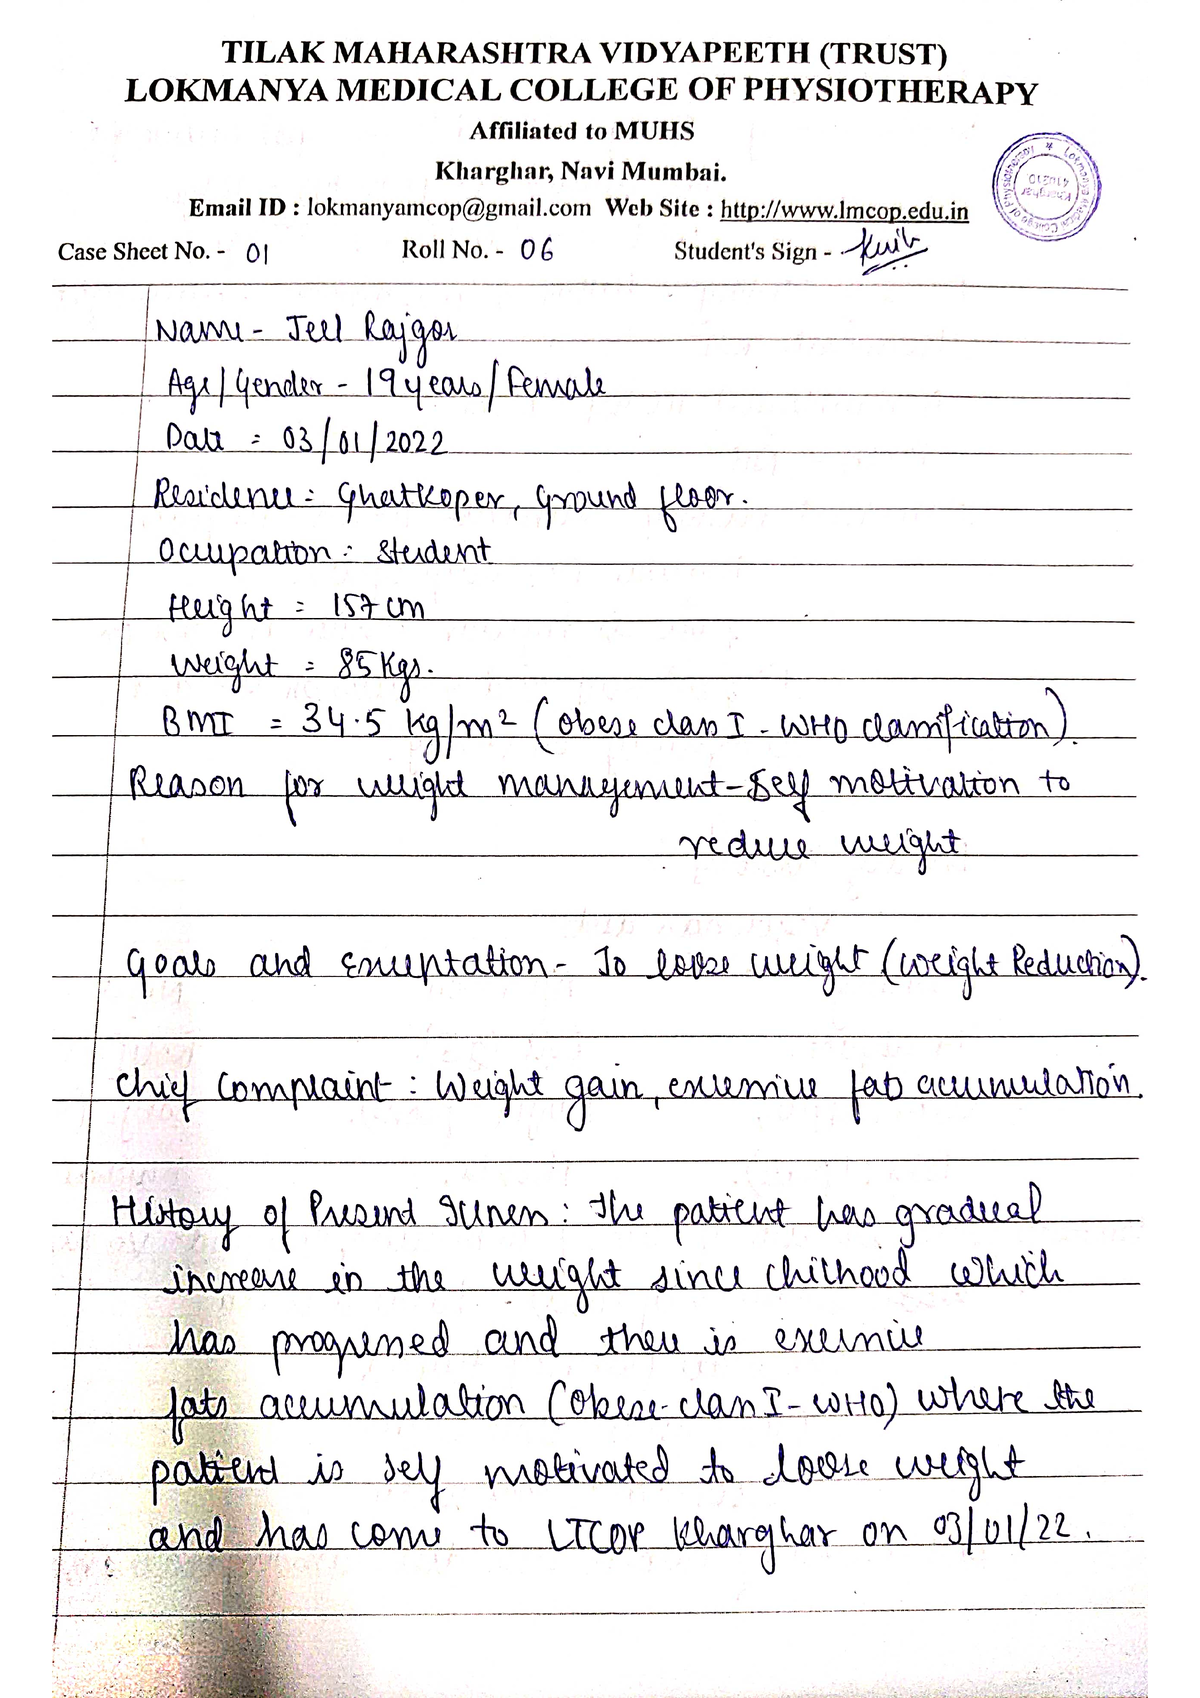 TILAK MAHARASHTRA VIDYAPEETH (TRUST)
LOKMANYA MEDICAL COLLEGE OF PHYSIOTHERAPY
Affiliated to MUHS
Kharghar, Navi Mumbai.
Email ID : lokmanyamcop@gmail.com Web Site : http://www.lmcop.edu.in
Lokmanya Medical College of Physiotherapy * Kharghar 410210
Case Sheet No. - 01 Roll No. - 06 Student's Sign -
Name - Jeel Rajgor
Age/Gender - 19 years/Female
Date = 03/01/2022
Residence = Ghatkoper, Ground floor.
Occupation : Student
Height = 157 cm
Weight = 85 Kgs.
BMI = 34.5 kg/m² (obese class I - WHO classification).
Reason for weight management - Self motivation to
reduce weight
Goals and Exceptation - To loose weight (Weight Reduction).
Chief Complaint : Weight gain, excessive fats accumulation.
History of Present Illness : The patient has gradual
increase in the weight since chilhood which
has progressed and there is excessive
fats accumulation (Obese-class I - WHO) where the
patient is self motivated to loose weight
and has come to LTCOP Kharghar on 03/01/22.